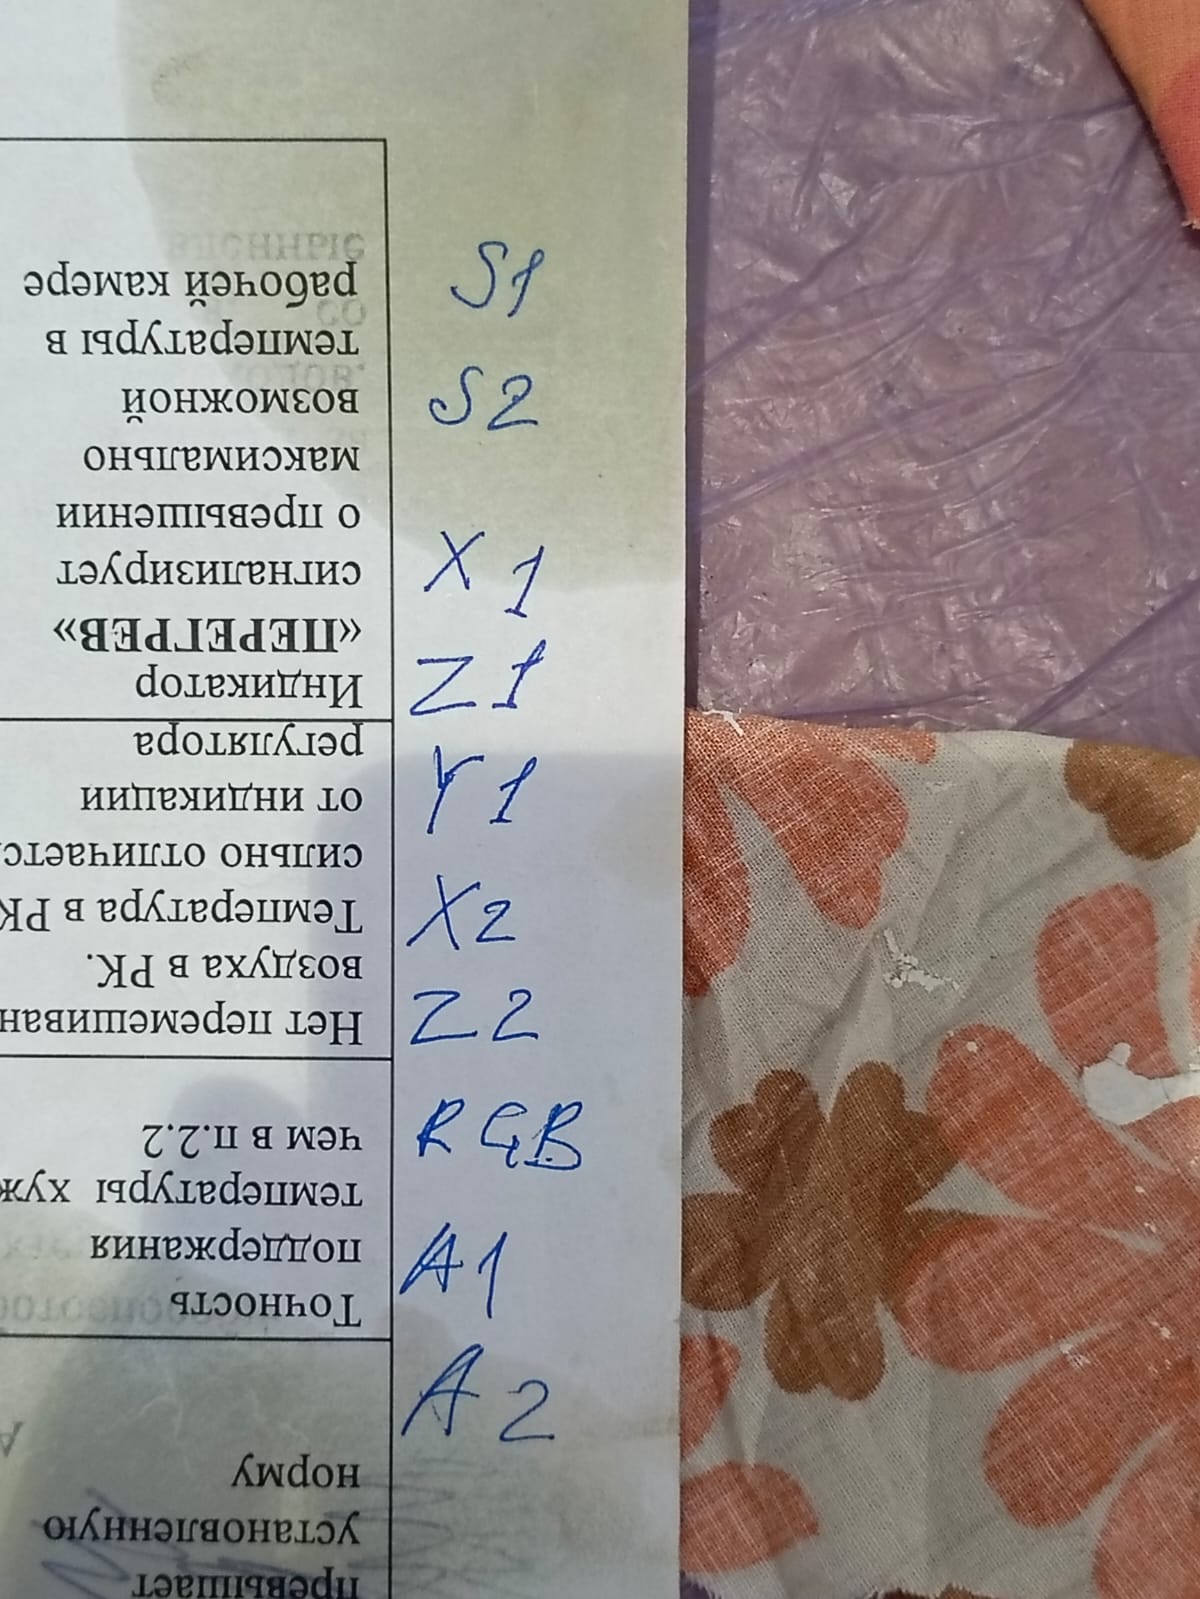 S1
S2
X 1
Z1
Y 1
X2
Z 2
RGB
A1
A 2
превышает
установленную
норму
Точность
поддержания
температуры хуж
чем в п.2.2
Нет перемешиван
воздуха в РК.
Температура в РК
сильно отличаетс
от индикации
регулятора
Индикатор
«ПЕРЕГРЕВ»
сигнализирует
о превышении
максимально
возможной
температуры в
рабочей камере